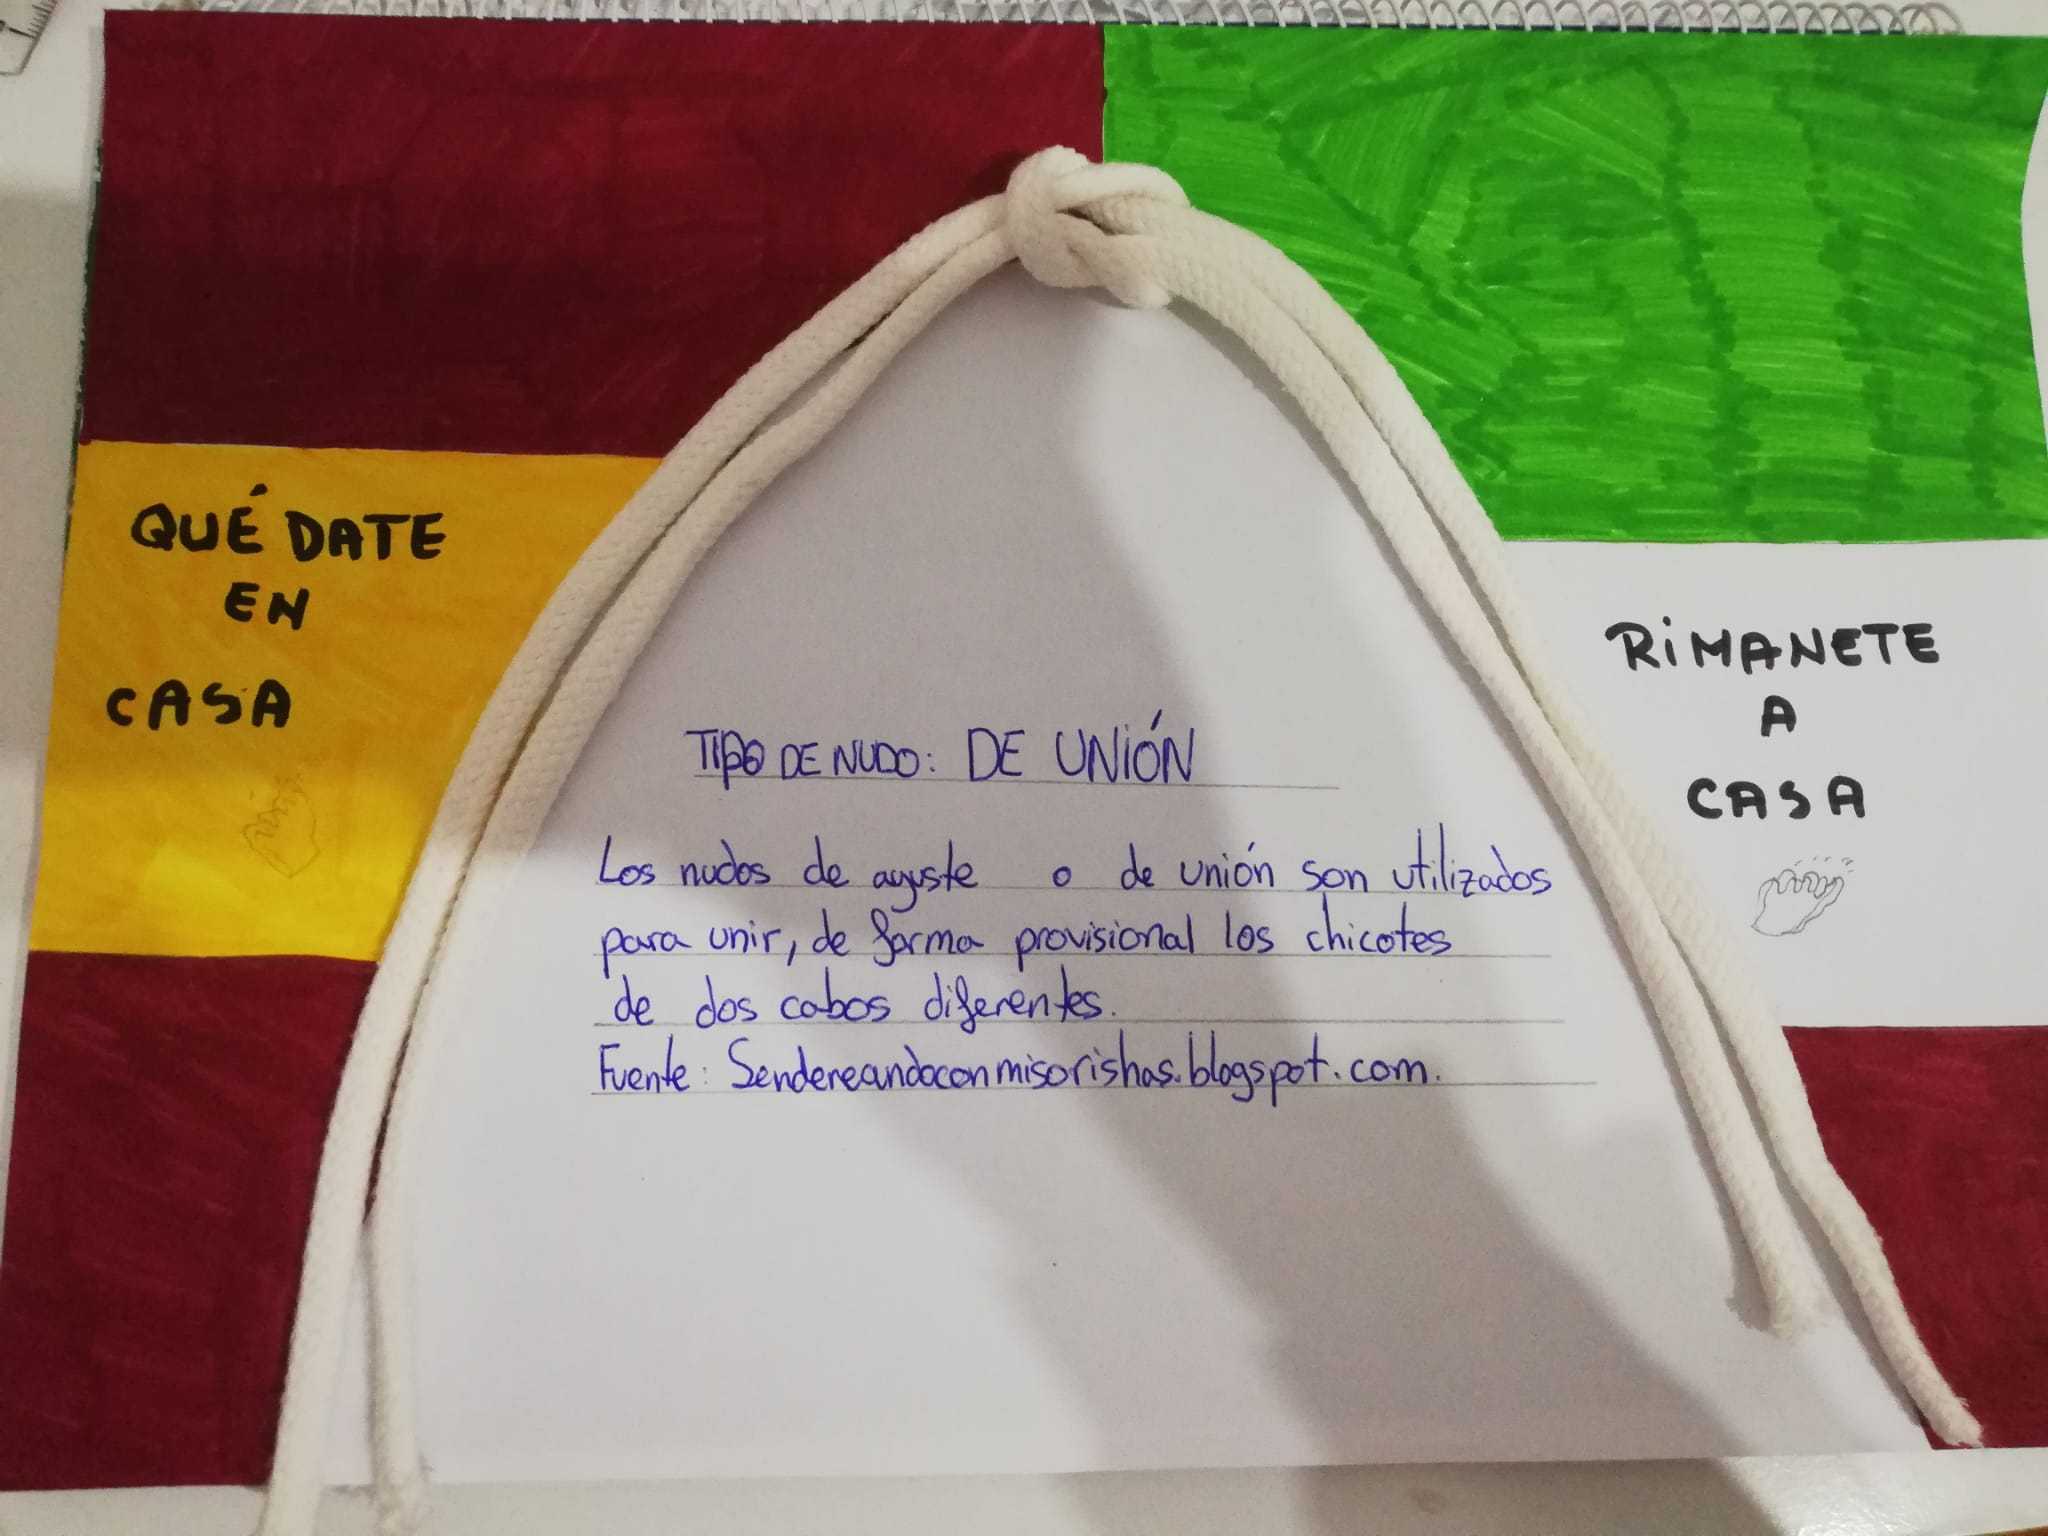 QUÉDATE
EN
CASA
RIMANETE
A
CASA
TIPO DE NUDO: DE UNIÓN
Los nudos de ayuste o de unión son utilizados
para unir, de forma provisional los chicotes
de dos cabos diferentes.
Fuente: Sendereandoconmisorishas.blogspot.com.